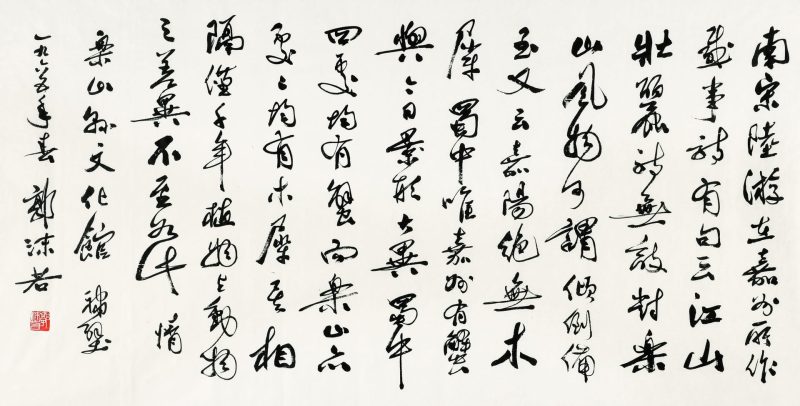 南宋陸游在嘉州所作
事詩有句云江山
壯麗詩無敵對樂
山風物可謂傾倒備
至又云嘉陽絶無木
犀蜀中唯嘉州有蟹
與今日景形大異蜀中
四處均有蟹而樂山亦
處〻均有木犀其相
隔僅千年植物与動物
之差異不至如
樂山縣文化館 補壁
一九年春 郭沫若